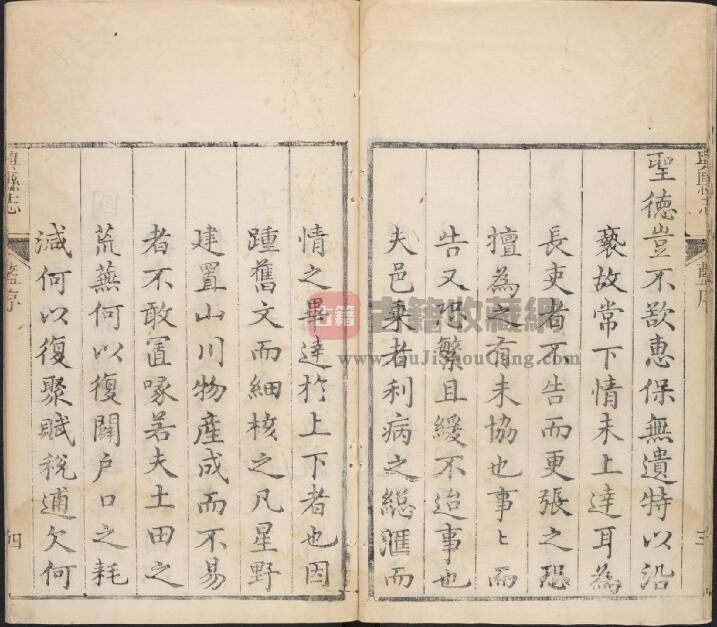 聖德豈不欲惠保無遺特以沿
褻故常下情未上達耳為
長吏者不告而更張之恐
擅為之有未協也事〻而
告又恐繁且緩不迨事也
夫邑乗者利病之総滙而
情之畢達扵上下者也因
踵舊文而細核之凡星野
建置山川物産成而不易
者不敢置喙若夫土田之
荒蕪何以復闢户口之耗
減何以復聚賦稅逋欠何
縣志
藍序
三
縣志
藍序
四
古籍
古籍收藏網
www.GuJiShouCang.com